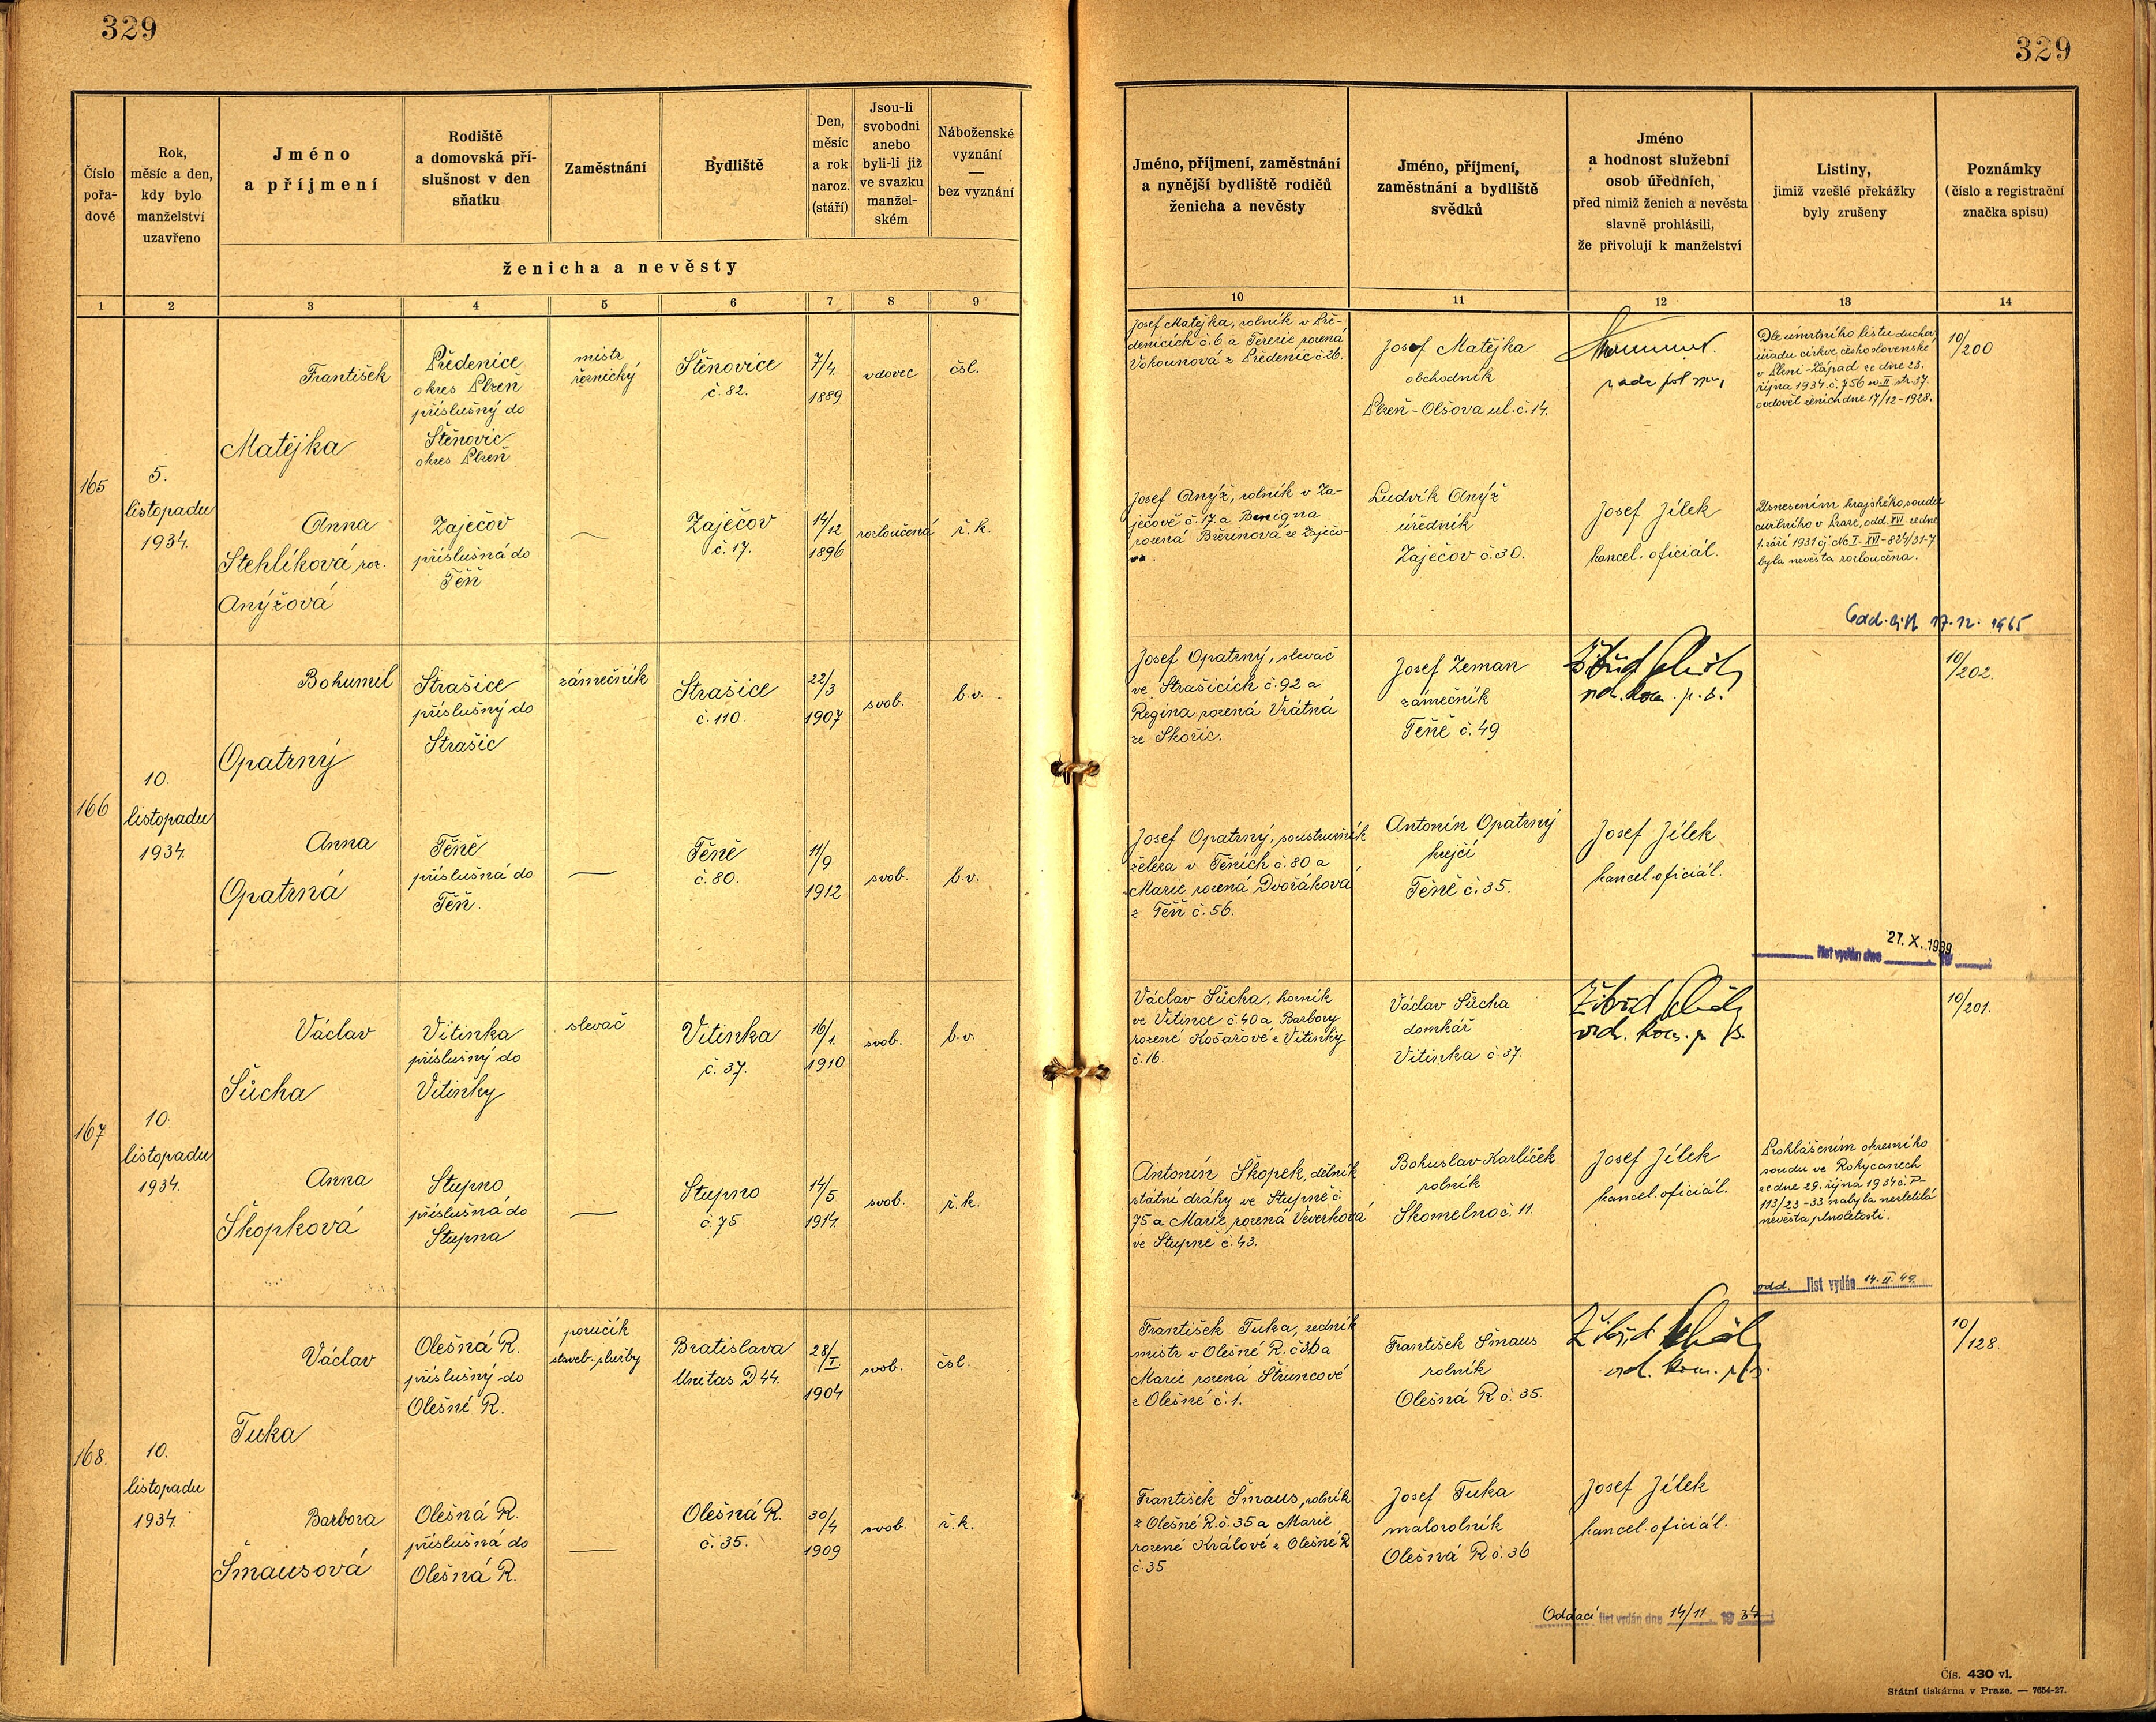 329
329
Číslo
pořa-
dové
Rok,
měsíc a den,
kdy bylo
manželství
uzavřeno
Jméno
a příjmení
Rodiště
a domovská pří-
slušnost v den
sňatku
Zaměstnání
Bydliště
Den,
měsíc
a rok
naroz.
(stáří)
Jsou-li
svobodni
anebo
byli-li již
ve svazku
manžel-
ském
Náboženské
vyznání
—
bez vyznání
ženicha a nevěsty
Jméno, příjmení, zaměstnání
a nynější bydliště rodičů
ženicha a nevěsty
Jméno, příjmení,
zaměstnání a bydliště
svědků
Jméno
a hodnost služební
osob úředních,
před nimiž ženich a nevěsta
slavně prohlásili,
že přivolují k manželství
Listiny,
jimiž vzešlé překážky
byly zrušeny
Poznámky
(číslo a registrační
značka spisu)
1 2 3 4 5 6 7 8 9 10 11 12 13 14
165
5.
listopadu
1934.
František
Matějka
Předenice
okres Plzeň
příslušný do
Štěnovic
okres Plzeň
mistr
řeznický
Štěnovice
č. 82.
7/4.
1889
vdovec
čsl.
Josef Matějka, rolník v Pře-
denicích č. 6 a Terezie rozená
Vokounová z Předenic č. 26.
Josef Matějka
obchodník
Plzeň - Olšova ul. č. 14.
rada pol. spr.
Dle úmrtního listu duchov.
úřadu církve československé
v Plzni - Západ ze dne 23.
října 1934 č. 756 sv. II. str. 37.
ovdověl ženich dne 17/12 - 1928.
10/200
Anna
Stehlíková roz.
Anýžová
Zaječov
příslušná do
Těň
—
Zaječov
č. 17.
14/12
1896
rozloučená
ř. k.
Josef Anýž, rolník v Za-
ječově č. 17. a Benigna
rozená Březinová ze Zaječo-
va.
Ludvík Anýž
úředník
Zaječov č. 30.
Josef Jílek
kancel. oficiál.
Usnesením krajského soudu
civilního v Praze, odd. XVI. ze dne
1. září 1931 čj. Nc I - XVI - 824/31-7
byla nevěsta rozloučena.
17. 12. 1965
166
10.
listopadu
1934.
Bohumil
Opatrný
Strašice
příslušný do
Strašic
zámečník
Strašice
č. 110.
22/3
1907
svob.
b. v.
Josef Opatrný, slevač
ve Strašicích č. 92 a
Regina rozená Vrátná
ze Skořic.
Josef Zeman
zámečník
Těně č. 49
10/202.
Anna
Opatrná
Těně
příslušná do
Těň.
—
Těně
č. 80.
11/9
1912
svob.
b. v.
Josef Opatrný, soustružník
železa v Těních č. 80 a
Marie rozená Dvořáková
z Těň č. 56.
Antonín Opatrný
krejčí
Těně č. 35.
Josef Jílek
kancel. oficiál.
list vydán dne 27. X. 1939
167
10.
listopadu
1934.
Václav
Šůcha
Vitinka
příslušný do
Vitinky
slevač
Vitinka
č. 37.
16/1.
1910
svob.
b. v.
Václav Šůcha, horník
ve Vitince č. 40 a Barbory
rozené Košařové z Vitinky
č. 16.
Václav Šůcha
domkář
Vitinka č. 37.
10/201.
Anna
Škopková
Stupno
příslušná do
Stupna
—
Stupno
č. 75
14/5
1914.
svob.
ř. k.
Antonín Škopek, dělník
státní dráhy ve Stupně č.
75 a Marie rozená Veverková
ve Stupně č. 43.
Bohuslav Karlíček
rolník
Skomelno č. 11.
Josef Jílek
kancel. oficiál.
Prohlášením okresního
soudu ve Rokycanech
ze dne 29. října 1934 č. P-
113/23-33 nabyla nezletilá
nevěsta plnoletosti.
odd. list vydán 14. II. 49.
168.
10.
listopadu
1934.
Václav
Tuka
Olešná R.
příslušný do
Olešné R.
poručík
staveb. služby
Bratislava
Unitas D 44.
28/I.
1904
svob.
čsl.
František Tuka, zedník
mistr v Olešné R. č. 36 a
Marie rozená Štruncové
z Olešné č. 1.
František Šmaus
rolník
Olešná R č. 35.
10/128.
Barbora
Šmausová
Olešná R.
příslušná do
Olešná R.
—
Olešná R.
č. 35.
30/4
1909
svob.
ř. k.
František Šmaus, rolník
z Olešné R. č. 35 a Marie
rozené Králové z Olešné R
č. 35
Josef Tuka
malorolník
Olešná R č. 36
Josef Jílek
kancel. oficiál.
Oddací list vydán dne 14/11 1934
Čís. 430 vl.
Státní tiskárna v Praze. — 7654-27.